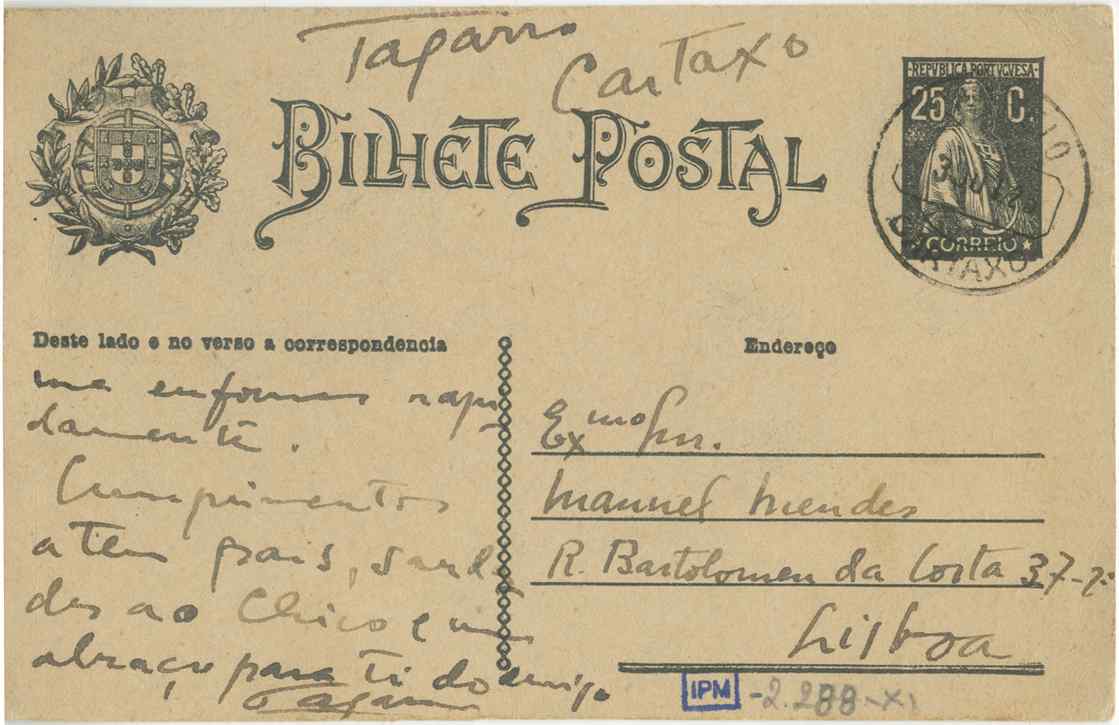 Tagarro
Cartaxo
BILHETE POSTAL
REPUBLICA PORTUGUESA
25 C.
CORREIO
CARTAXO
Deste lado e no verso a correspondencia
Endereço
me enformes rapi-
damente.
Cumprimentos
a teus pais, sauda
des ao Chico e um
abraço para ti do amigo
Tagarro
Exmo Snr.
Manuel Mendes
R. Bartolomeu da Costa 37-2º
Lisboa
IPM -2.288-XI